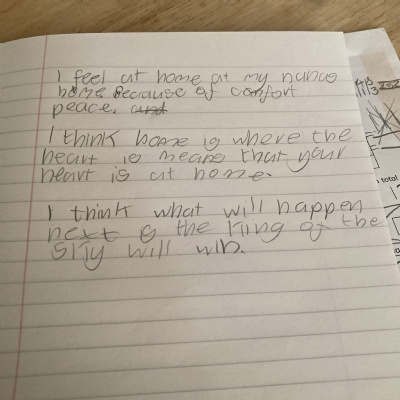 I feel at home at my nanas
home because of comfort
peace. and
I think home is where the
heart is means that your
heart is at home.
I think what will happen
next is the King of the
Sky will win.
total